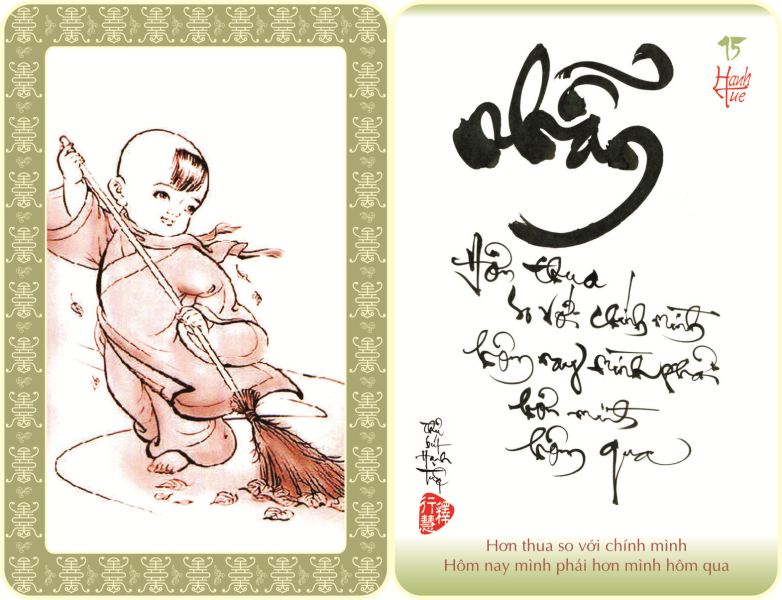 nhẫn
Hanh
Tue
Hơn thua
so với chính mình
hôm nay mình phải
hơn mình
hôm qua
Thủ
bút
Hạnh
Tuệ
釋行慧
Hơn thua so với chính mình
Hôm nay mình phải hơn mình hôm qua